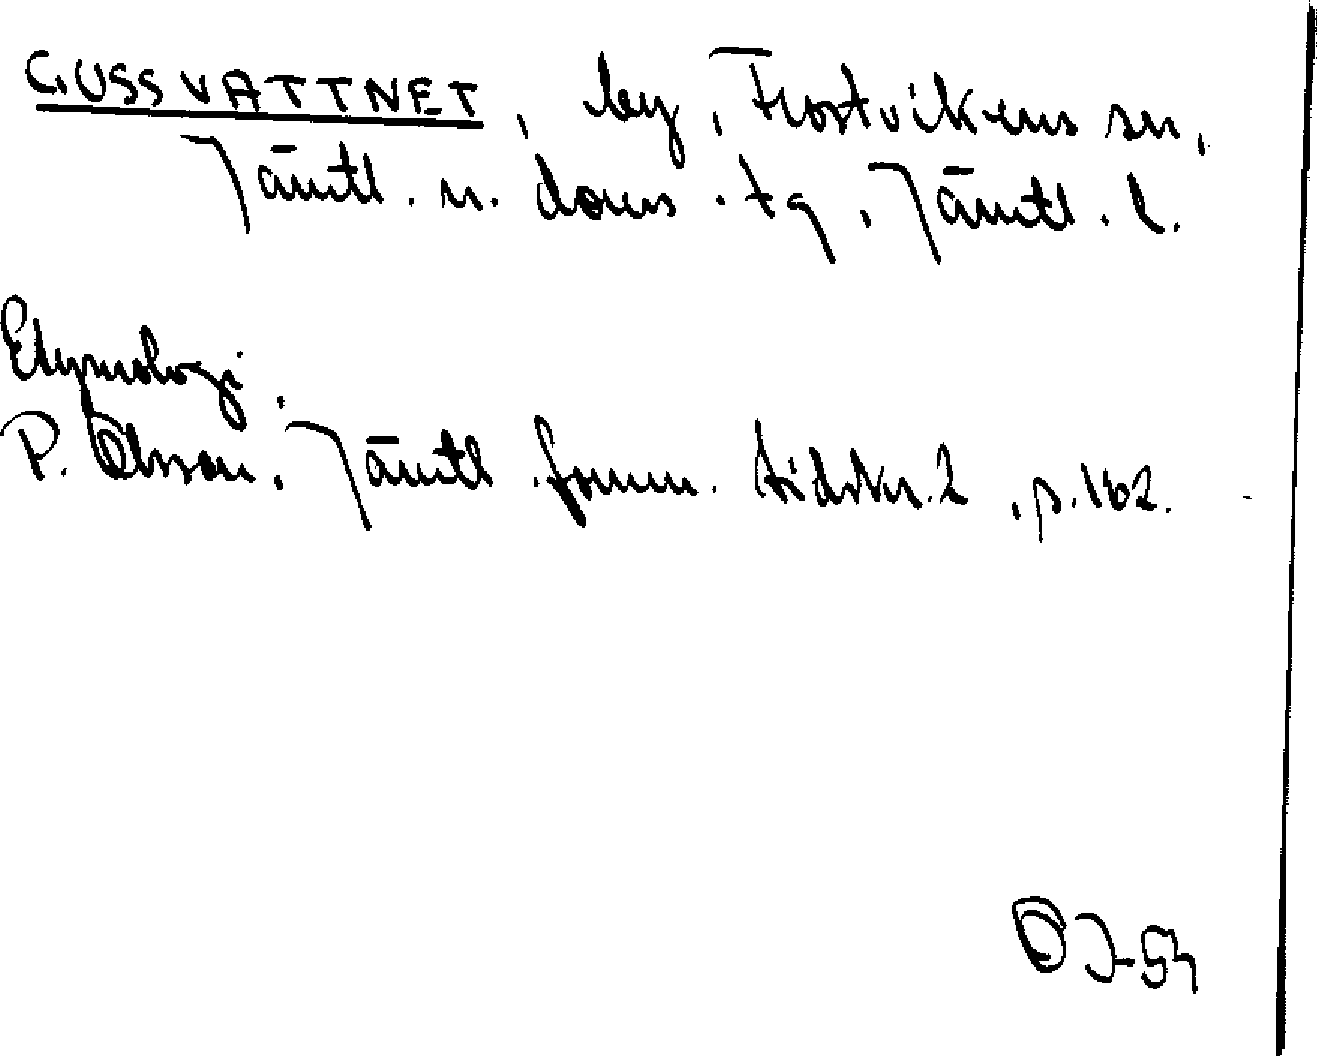 GUSSVATTNET, by, Frostvikens sn,
Jämtl. n. doms. tg, Jämtl. l.
Etymologi.
P. Olsson, Jämtl. fornm. tidskr. 2, p. 162.
OJ-54